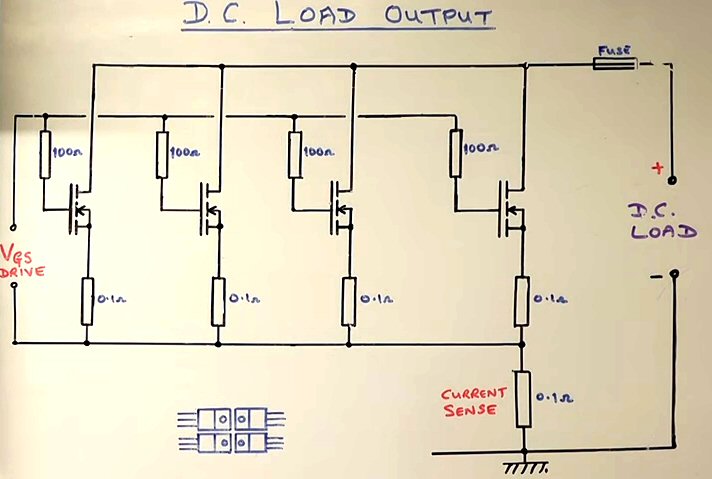 D.C. LOAD OUTPUT
FUSE
100Ω
100Ω
100Ω
100Ω
+
D.C.
LOAD
-
VGS
DRIVE
0.1Ω
0.1Ω
0.1Ω
0.1Ω
CURRENT
SENSE
0.1Ω